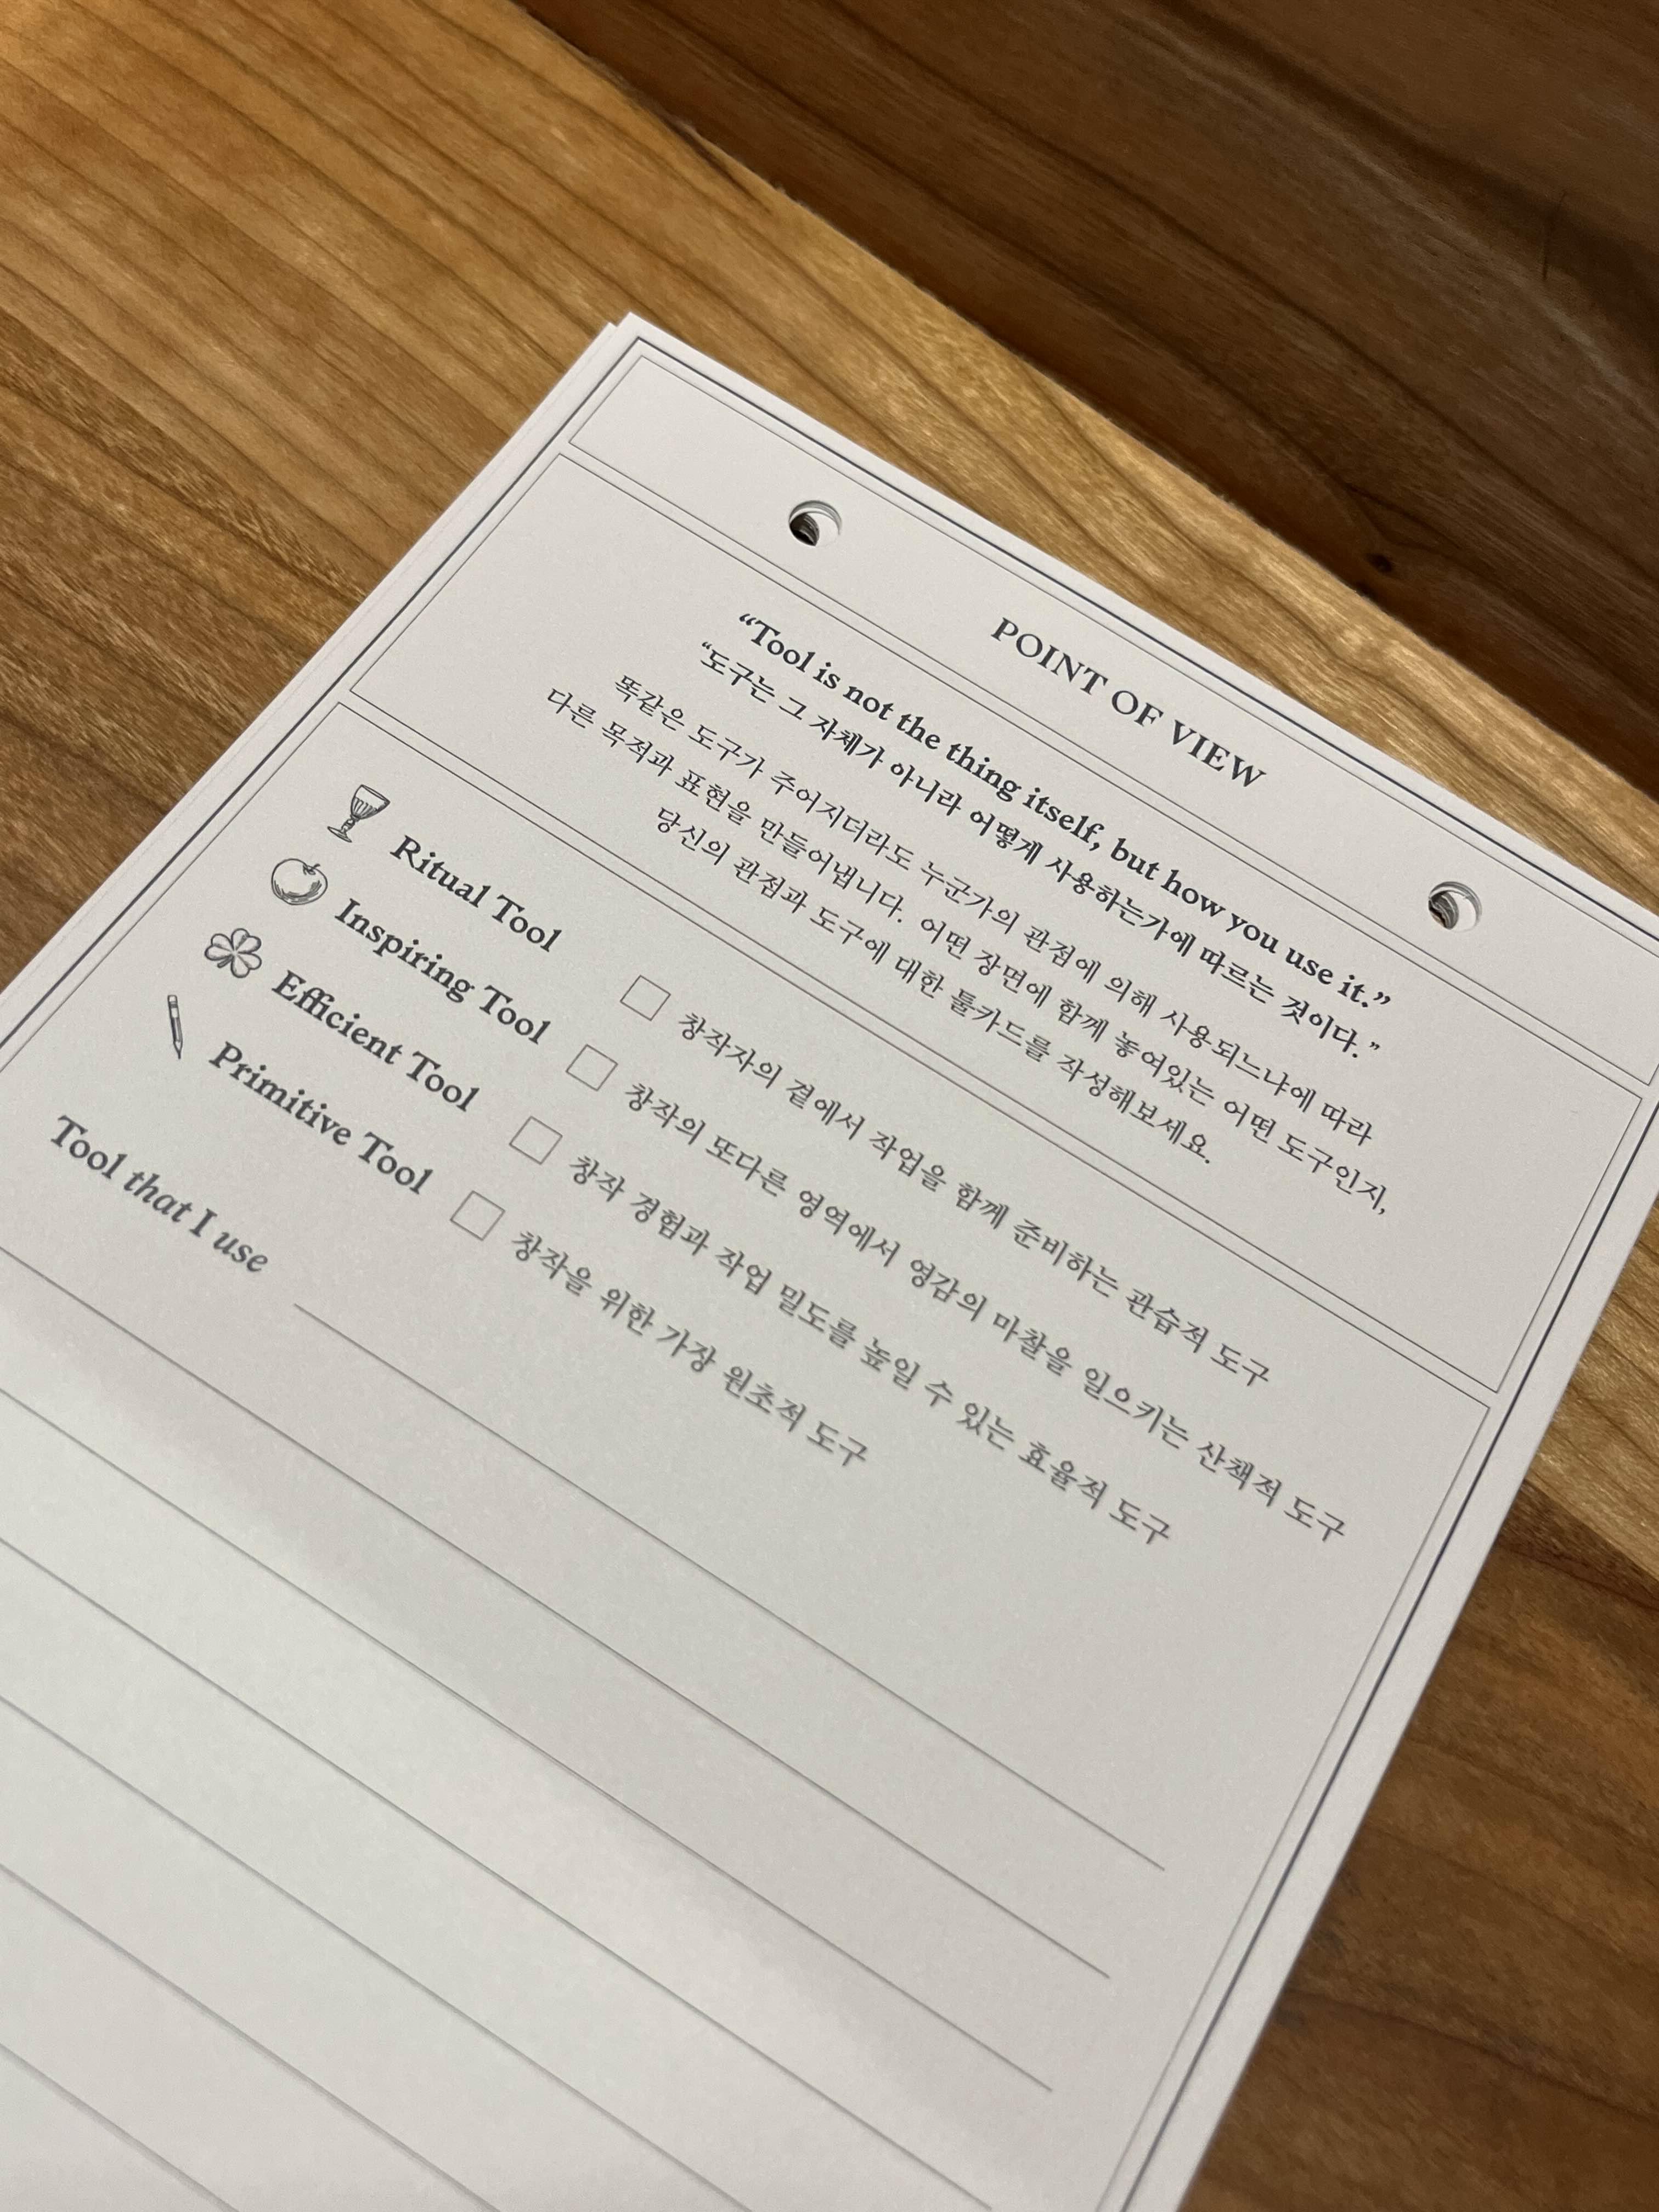 POINT OF VIEW
“Tool is not the thing itself, but how you use it.”
“도구는 그 자체가 아니라 어떻게 사용하는가에 따르는 것이다.”
똑같은 도구가 주어지더라도 누군가의 관점에 의해 사용되느냐에 따라
다른 목적과 표현을 만들어냅니다. 어떤 장면에 함께 놓여있는 어떤 도구인지,
당신의 관점과 도구에 대한 툴카드를 작성해보세요.
Ritual Tool □ 창작자의 곁에서 작업을 함께 준비하는 관습적 도구
Inspiring Tool □ 창작의 또다른 영역에서 영감의 마찰을 일으키는 산책적 도구
Efficient Tool □ 창작 경험과 작업 밀도를 높일 수 있는 효율적 도구
Primitive Tool □ 창작을 위한 가장 원초적 도구
Tool that I use